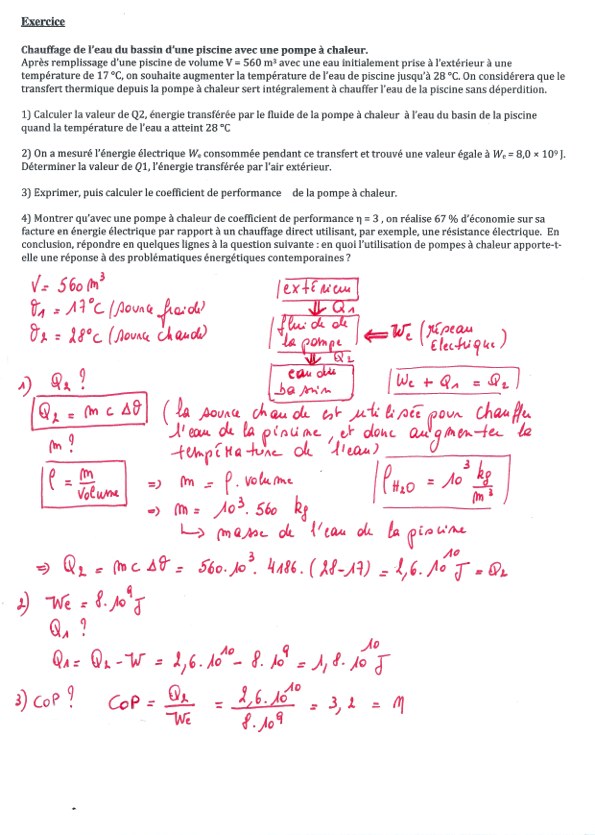 Exercice
Chauffage de l'eau du bassin d'une piscine avec une pompe à chaleur.
Après remplissage d'une piscine de volume V = 560 m³ avec une eau initialement prise à l'extérieur à une
température de 17 °C, on souhaite augmenter la température de l'eau de piscine jusqu'à 28 °C. On considérera que le
transfert thermique depuis la pompe à chaleur sert intégralement à chauffer l'eau de la piscine sans déperdition.
1) Calculer la valeur de Q2, énergie transférée par le fluide de la pompe à chaleur à l'eau du basin de la piscine
quand la température de l'eau a atteint 28 °C
2) On a mesuré l'énergie électrique We consommée pendant ce transfert et trouvé une valeur égale à We = 8,0 × 10⁹ J.
Déterminer la valeur de Q1, l'énergie transférée par l'air extérieur.
3) Exprimer, puis calculer le coefficient de performance de la pompe à chaleur.
4) Montrer qu'avec une pompe à chaleur de coefficient de performance η = 3 , on réalise 67 % d'économie sur sa
facture en énergie électrique par rapport à un chauffage direct utilisant, par exemple, une résistance électrique. En
conclusion, répondre en quelques lignes à la question suivante : en quoi l'utilisation de pompes à chaleur apporte-t-
elle une réponse à des problématiques énergétiques contemporaines ?
V = 560 m³
θ1 = 17°C (source froide)
θ2 = 28°C (source chaude)
extérieur
⇓ Q1
fluide de
la pompe
⇐ We (réseau
électrique)
⇓ Q2
eau du
bassin
We + Q1 = Q2
1) Q2 ?
Q2 = m c Δθ (la source chaude est utilisée pour chauffer
l'eau de la piscine, et donc augmenter la
température de l'eau)
m ?
ρ = m/volume => m = ρ. volume
ρH2O = 10³ kg/m³
=> m = 10³. 560 kg
↳ masse de l'eau de la piscine
=> Q2 = m c Δθ = 560.10³. 4186. (28-17) = 2,6. 10¹⁰ J = Q2
2) We = 8.10⁹ J
Q1 ?
Q1 = Q2 - W = 2,6.10¹⁰ - 8. 10⁹ = 1,8. 10¹⁰ J
3) COP ? COP = Q2/We = 2,6.10¹⁰/8.10⁹ = 3,2 = η